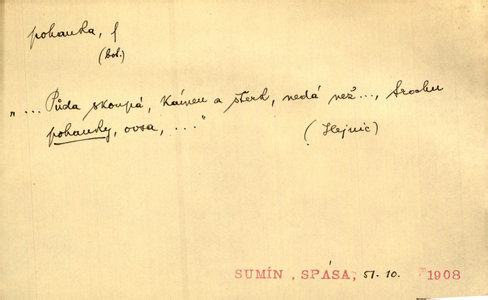 pohanka, f
(bot.)
"... Půda skoupá, kámen a štěrk, nedá než ..., trochu
pohanky, ovsa, ..."
(Hejnic)
SUMÍN, SPÁSA, 51. 10. 1908